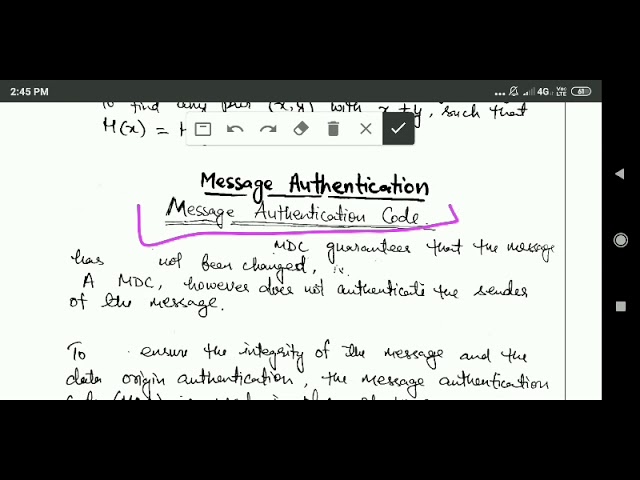 2:45 PM
4G
VoLTE
61
To find any pair (x,y) with x≠y, such that
H(x) = H
Message Authentication
Message Authentication Code.
MDC guarantees that the message
has not been changed,
A MDC, however does not authenticate the sender
of the message.
To ensure the integrity of the message and the
data origin authentication, the message authentication